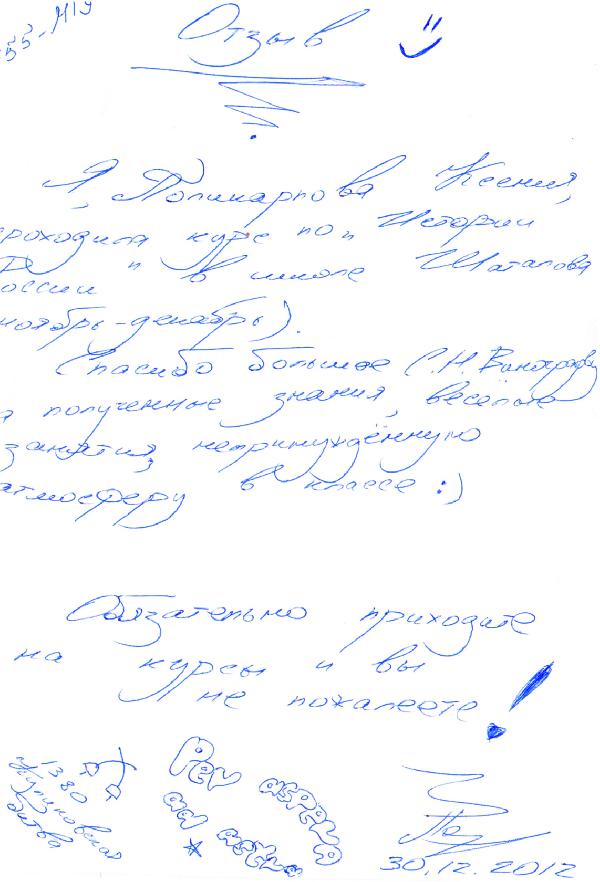 55-М19
Отзыв
Я, Поликарпова Ксения,
проходила курс по "Истории
России" в школе Шаталова
ноябрь-декабрь).
Спасибо большое С.Н. Виноградову
за полученные знания, весёлые
занятия, непринуждённую
атмосферу в классе :)
Обязательно приходите
на курсы и вы
не пожалеете!
1380
Куликовская
битва
Per aspera
ad astra
30.12.2012